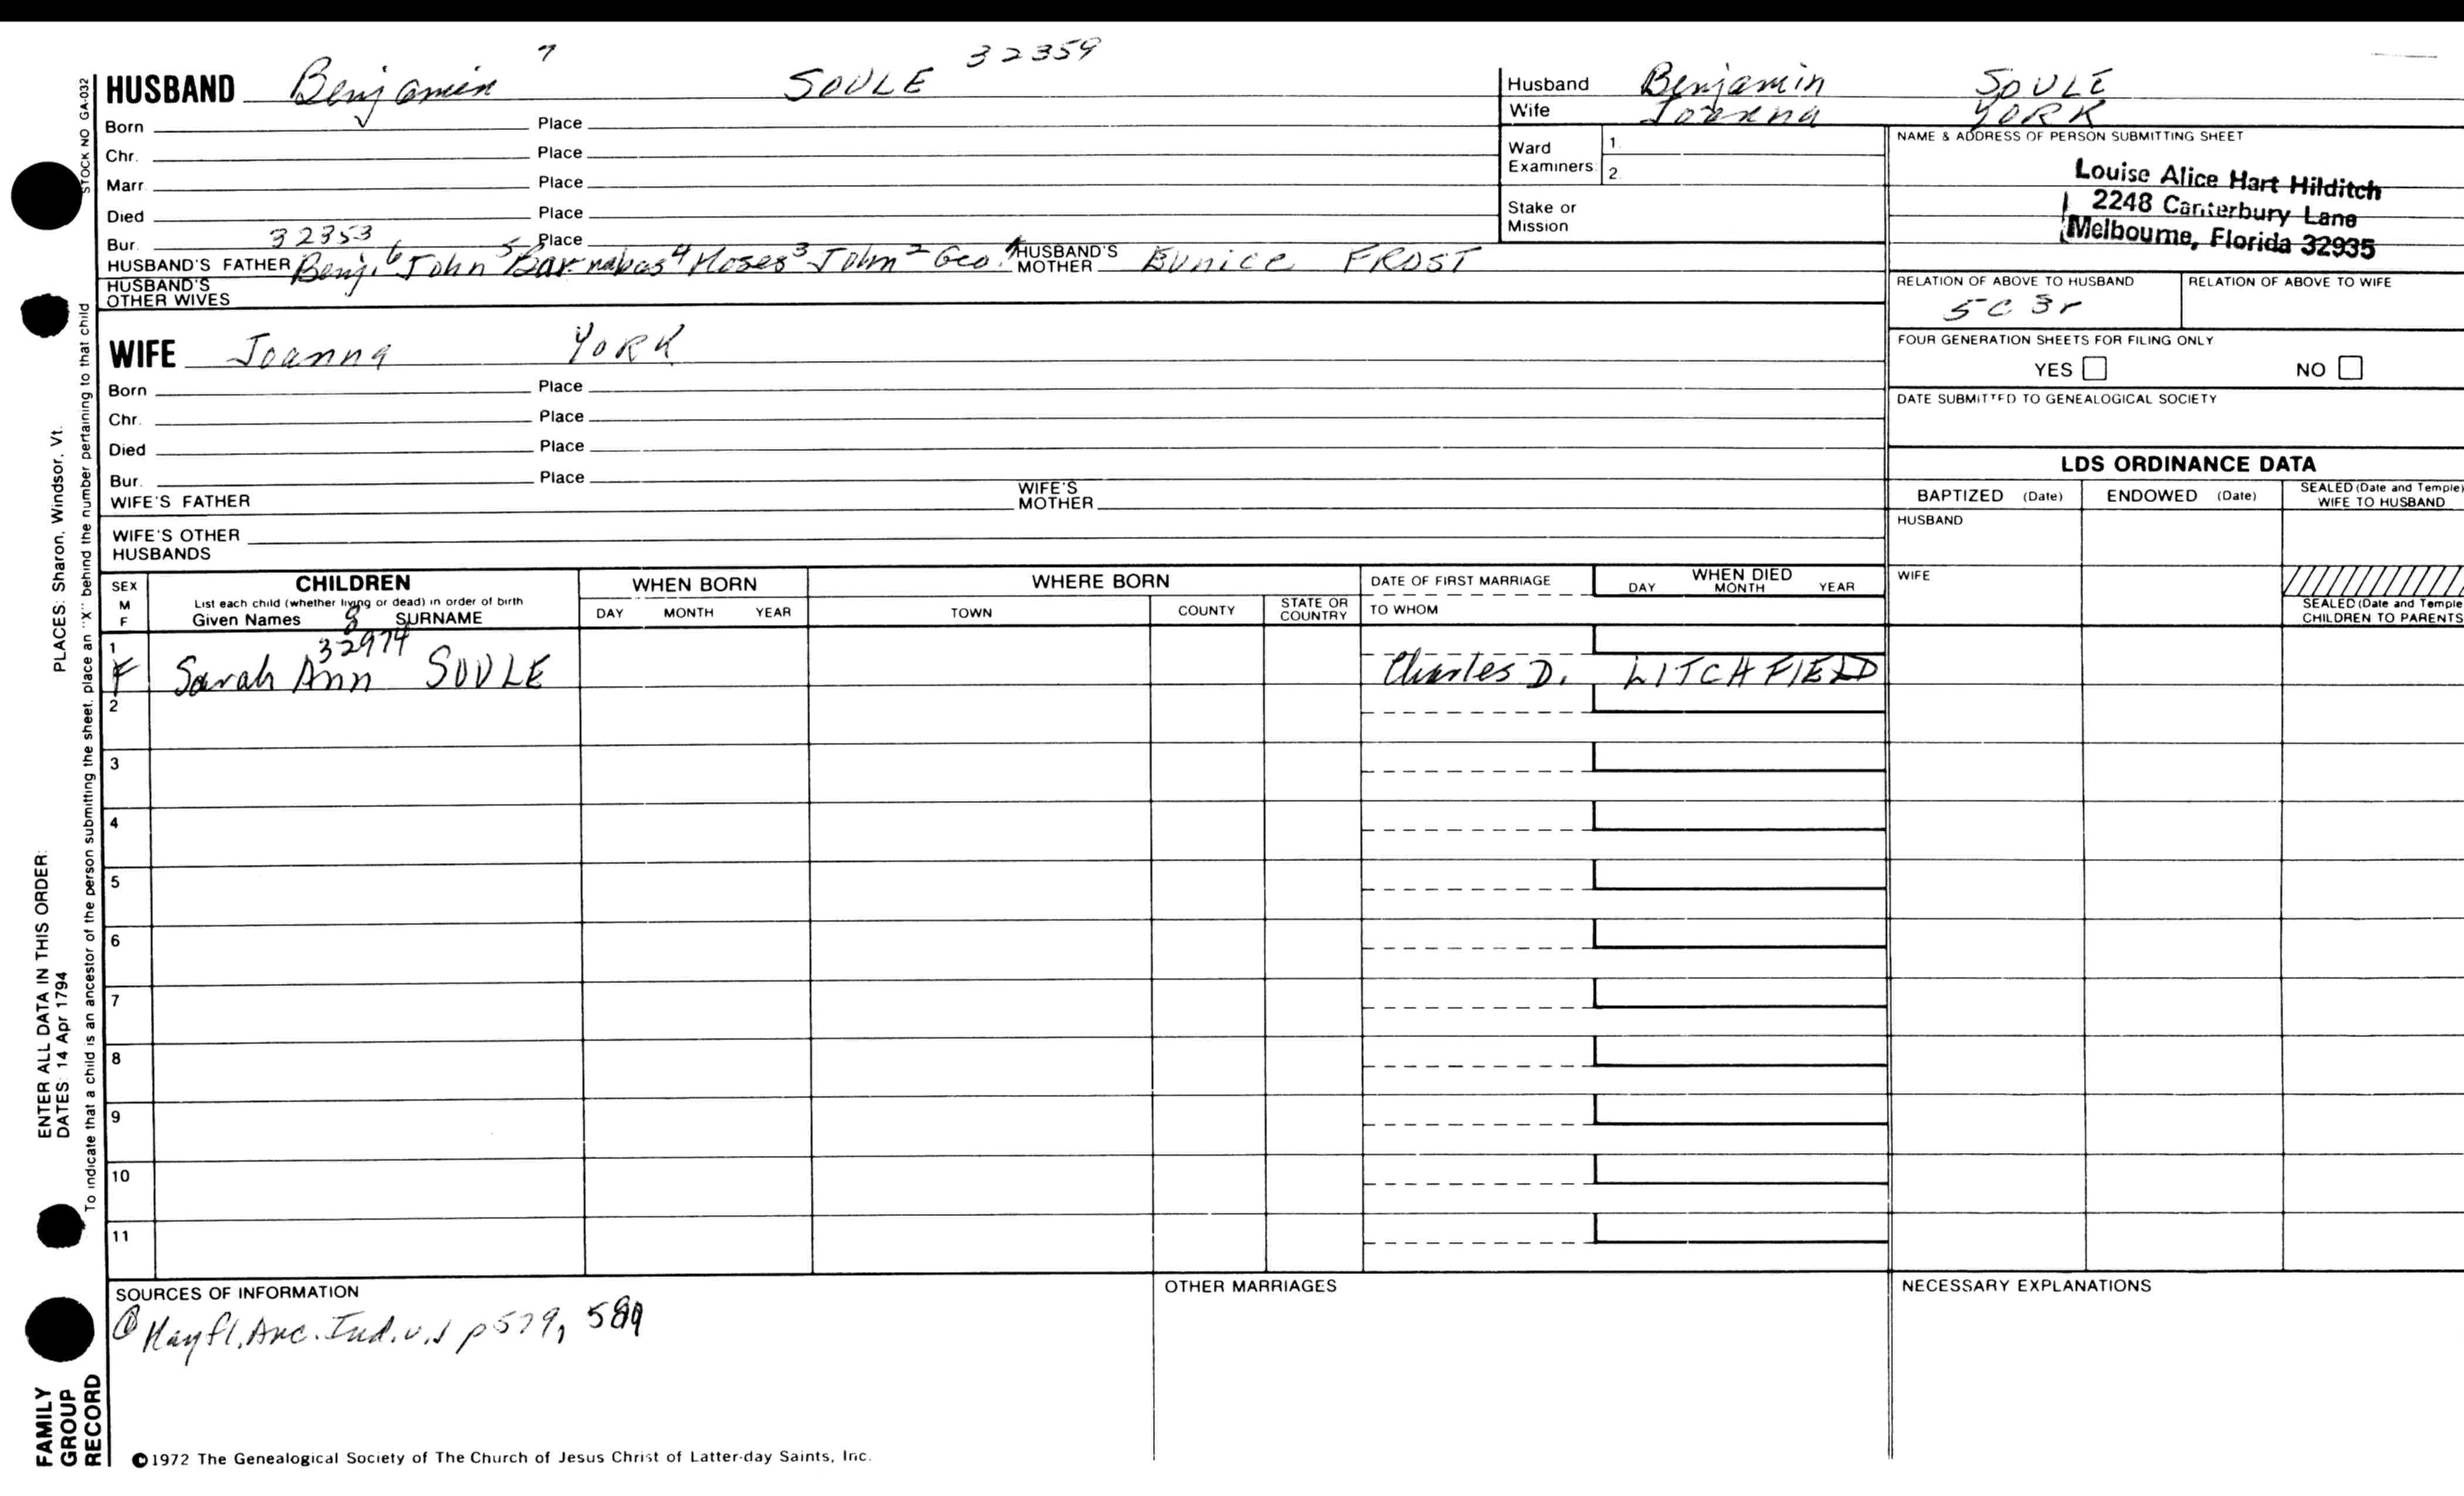 HUSBAND Benjamin 7 SOULE 32359
Born Place
Chr. Place
Marr. Place
Died Place
Bur. 32353 Place
HUSBAND'S FATHER Benj. 6 John 5 Barnabas 4 Moses 3 John 2 Geo. 1 HUSBAND'S MOTHER EUNICE FROST
HUSBAND'S OTHER WIVES
WIFE Joanna YORK
Born Place
Chr. Place
Died Place
Bur. Place
WIFE'S FATHER WIFE'S MOTHER
WIFE'S OTHER HUSBANDS
Husband Benjamin SOULE
Wife Joanna YORK
Ward Examiners: 1. 2.
Stake or Mission
NAME & ADDRESS OF PERSON SUBMITTING SHEET
Louise Alice Hart Hilditch
2248 Canterbury Lane
Melbourne, Florida 32935
RELATION OF ABOVE TO HUSBAND RELATION OF ABOVE TO WIFE
5C 3r
FOUR GENERATION SHEETS FOR FILING ONLY
YES NO
DATE SUBMITTED TO GENEALOGICAL SOCIETY
LDS ORDINANCE DATA
BAPTIZED (Date) ENDOWED (Date) SEALED (Date and Temple) WIFE TO HUSBAND
HUSBAND
WIFE
SEALED (Date and Temple CHILDREN TO PARENTS
SEX M F CHILDREN WHEN BORN WHERE BORN DATE OF FIRST MARRIAGE WHEN DIED
List each child (whether living or dead) in order of birth
Given Names SURNAME DAY MONTH YEAR TOWN COUNTY STATE OR COUNTRY TO WHOM DAY MONTH YEAR
8
32974
1
F Sarah Ann SOULE Charles D. LITCHFIELD
2
3
4
5
6
7
8
9
10
11
SOURCES OF INFORMATION OTHER MARRIAGES NECESSARY EXPLANATIONS
Mayfl. Anc. Ind. v.1 p 579,
©1972 The Genealogical Society of The Church of Jesus Christ of Latter-day Saints, Inc.
STOCK NO GA-032
To indicate that a child is an ancestor of the person submitting the sheet, place an "X" behind the number pertaining to that child
ENTER ALL DATA IN THIS ORDER:
DATES: 14 Apr 1794 PLACES: Sharon, Windsor, Vt.
FAMILY GROUP RECORD